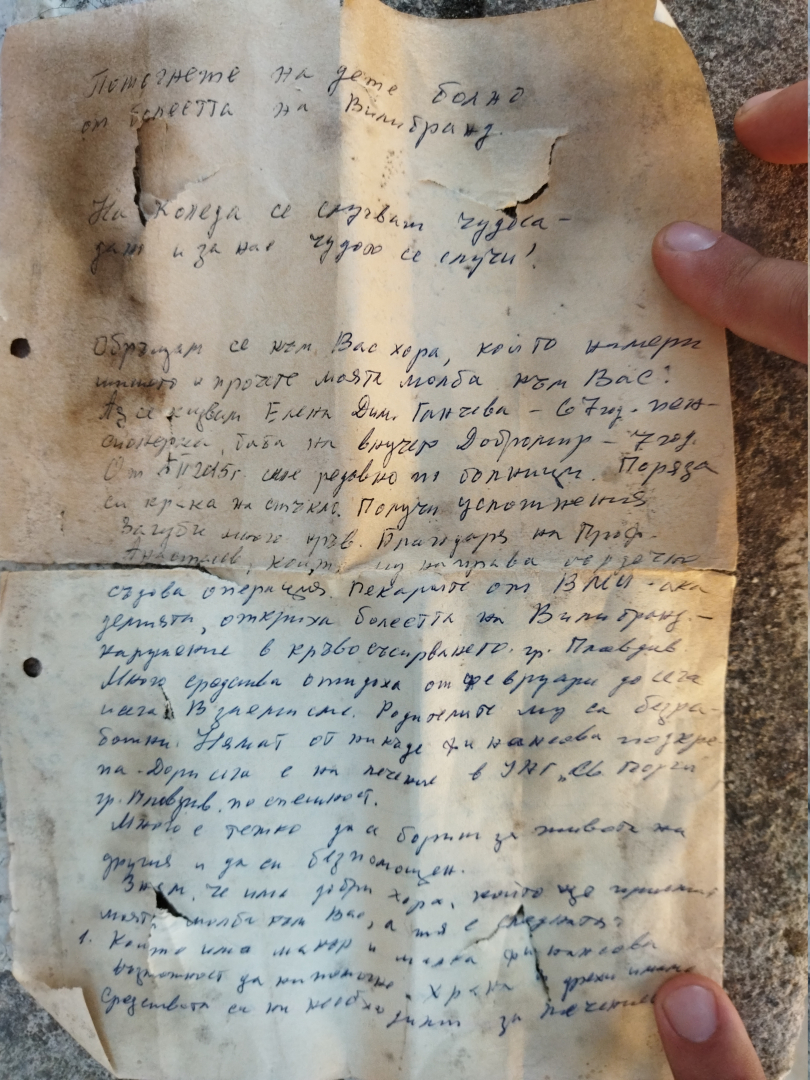 Помогнете на дете болно
от болестта на Вилибранд.
На Коледа се случват чудеса -
дано и за нас чудото се случи!
Обръщам се към Вас хора, които намери
писмото и прочете моята молба към Вас!
Аз се казвам Елена Дим. Ганчева - 67 год. пен-
сионерка, баба на внучето Добромир - 7 год.
От 2015 г. сме редовно по болници. Поряза
си крака на стъкло. Получи усложнения
Загуби много кръв. Благодаря на Проф.
Анастасов, който му направа сърдечно
съдова операция. Лекарите от ВМИ - ака
демията, откриха болестта на Вилибранд. -
нарушение в кръвосъсирването. гр. Пловдив.
Много средства отидоха от февруари до сега
и сега. Взаеми сме. Родителите му са безра-
ботни. Нямат от никъде финансова подкре-
па. Дори сега е на лечение в УНГ „Св. Георги
гр. Пловдив, по спешност.
Много е тежко да се бориш за живота на
другия и да си безпомощен.
Знам, че има добри хора, които ще приемат
моята молба към Вас, а тя е следната:
1. Който има макар и малка финансова
възможност да ни помогне. Храна и дрехи имаме
Средствата са ни необходими за лечение